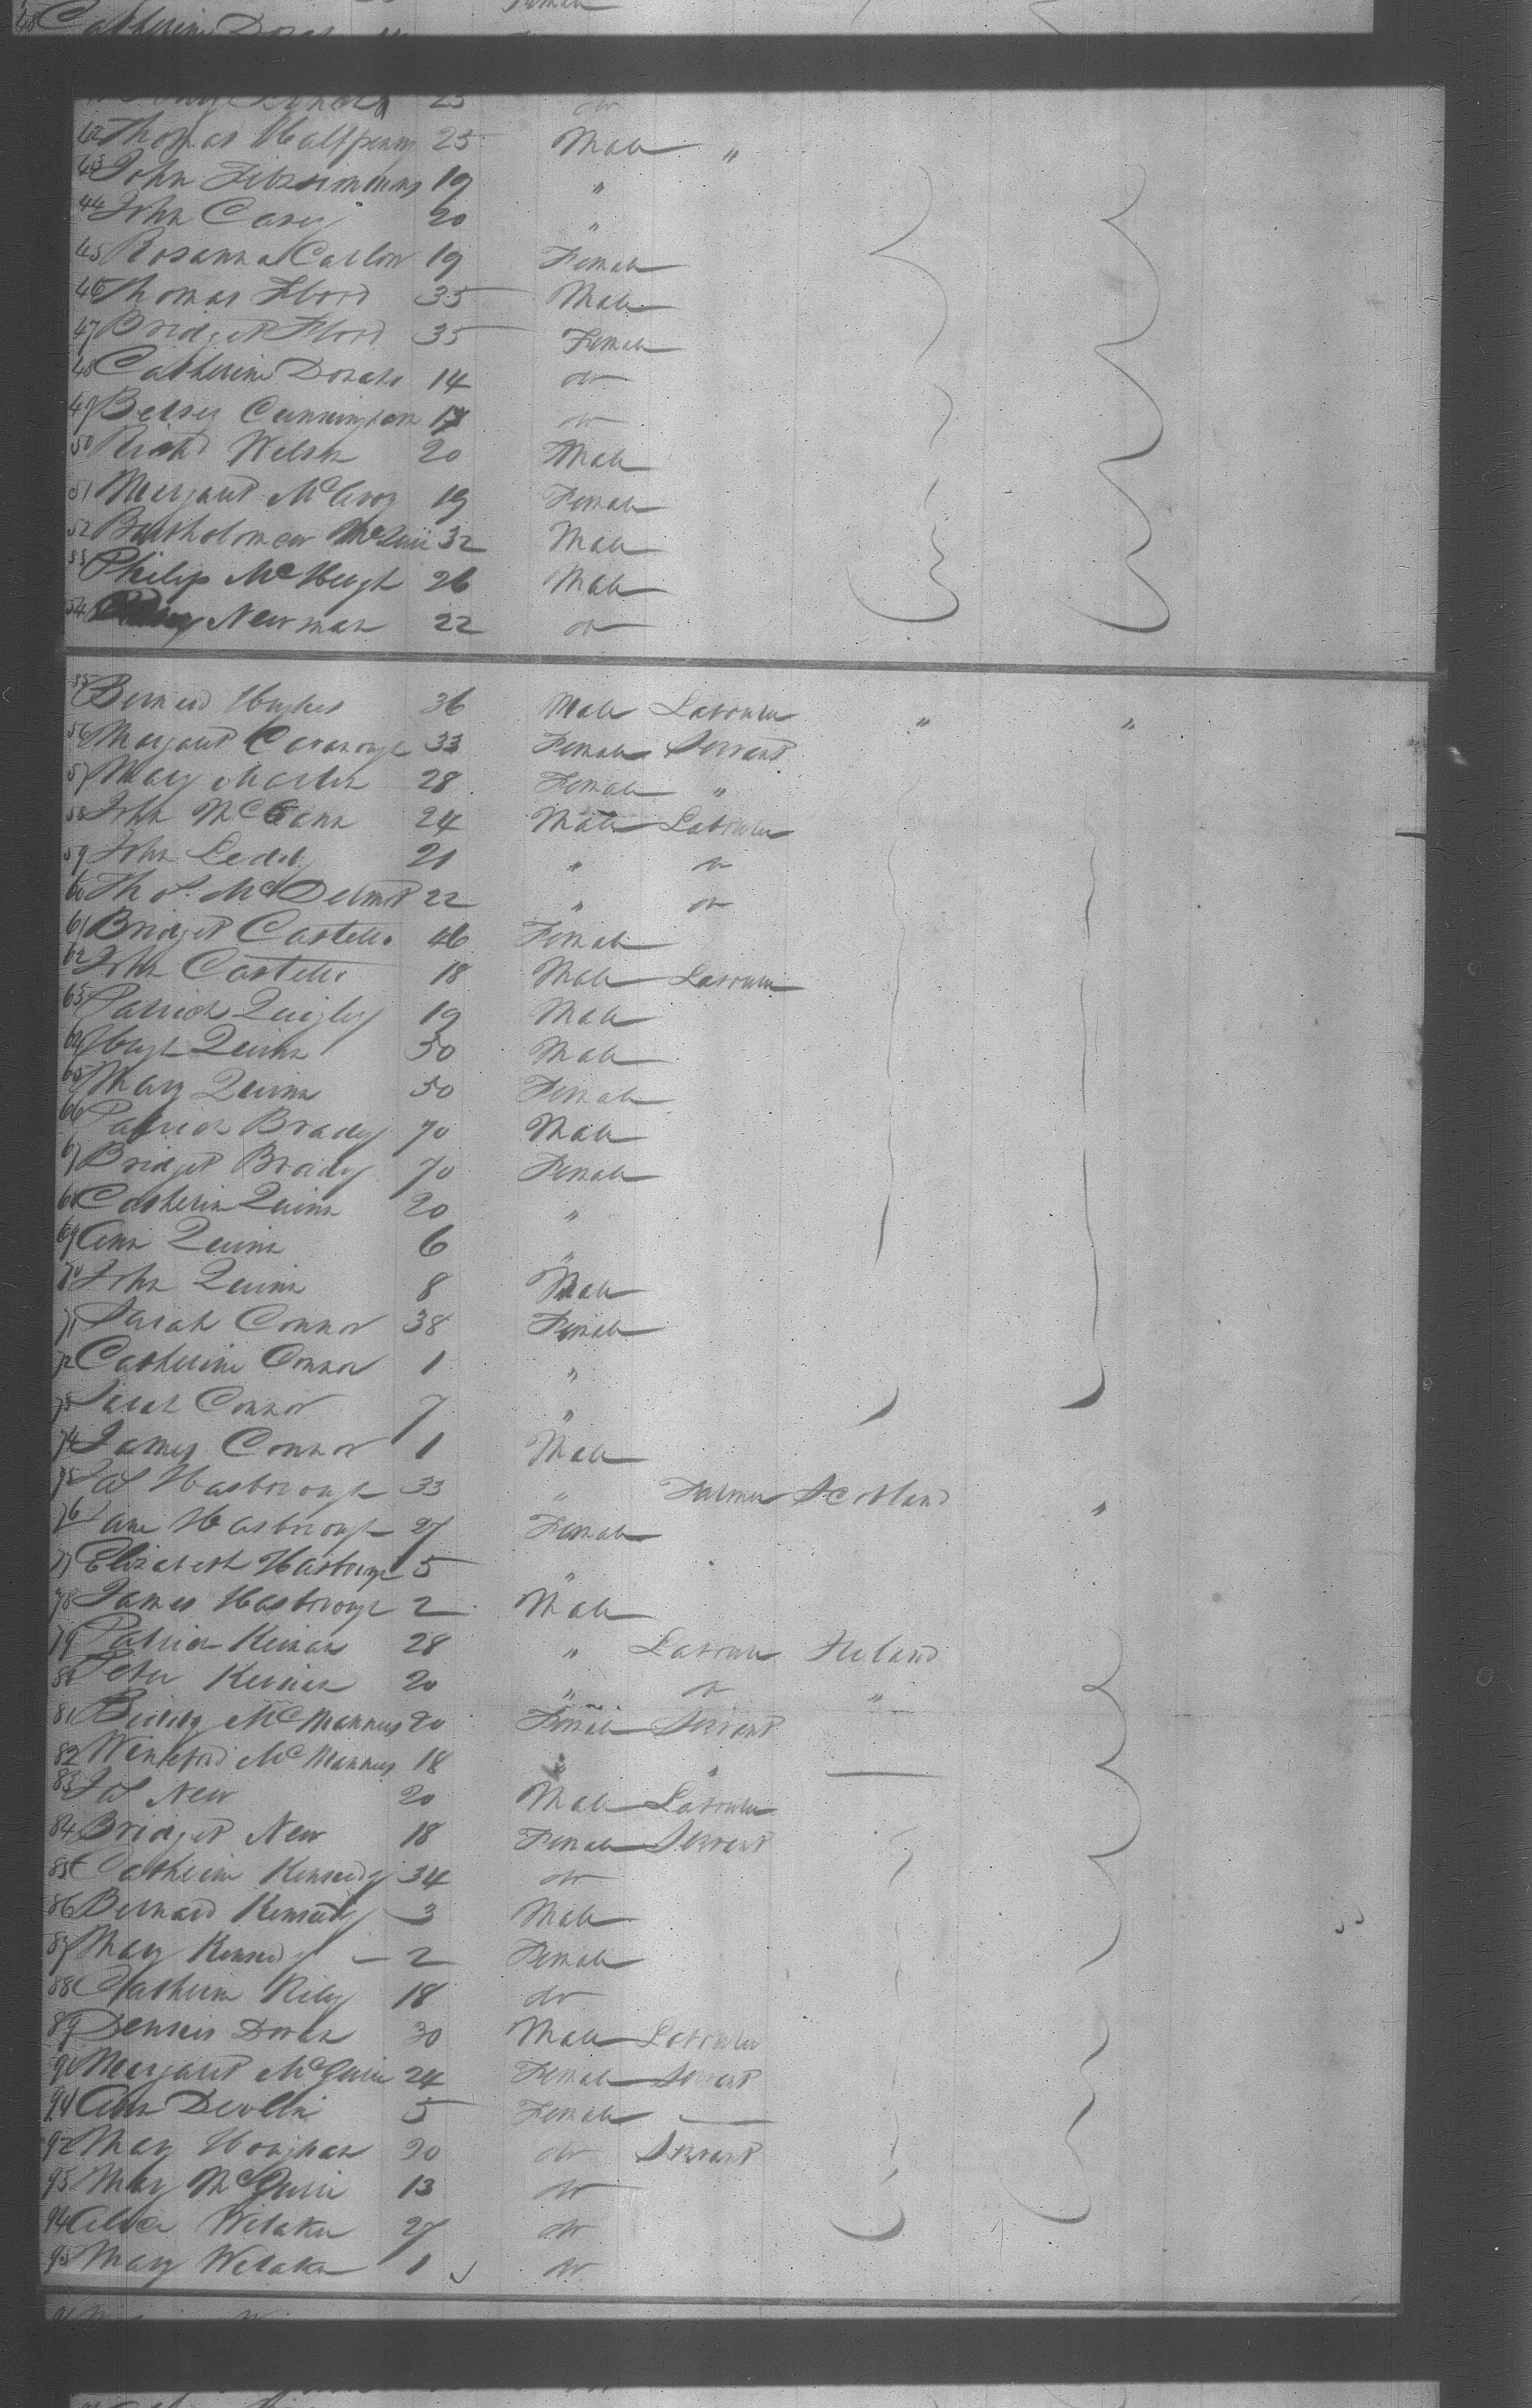 48 Catherine Doran
Female
25 do
42 Thomas Halfpenny 25 Male "
43 John Fitzsimmons 19 "
44 John Casey 20 "
45 Rosanna Carlon 19 Female
46 Thomas Flood 35 Male
47 Bridget Flood 35 Female
48 Catherine Doran 14 do
49 Betsey Cunningham 17 do
50 Richd Welsh 20 Male
51 Margaret McEvoy 19 Female
52 Bartholomew 32 Male
53 Philip McHugh 26 Male
54 Newman 22 do
55 Bernard Hughes 36 Male Labourer " "
56 Margaret Cavanough 33 Female Servant
57 Mary Martin 28 Female "
58 John McCann 24 Male Labourer
59 John Leddy 21 " do
60 Thos. McDermt 22 " do
61 Bridget Costello 46 Female
62 John Costello 18 Male Labourer
63 Patrick Quigley 19 Male
64 Hugh Quinn 50 Male
65 Mary Quinn 50 Female
66 Patrick Brady 70 Male
67 Bridget Brady 70 Female
68 Catherin Quinn 20 "
69 Ann Quinn 6 "
70 John Quinn 8 Male
71 Sarah Connor 38 Female
72 Catherine Connor 1 "
73 Sarah Connor 7 "
74 James Connor 1 Male
75 Jas Hasbrough 33 " Farmer Scotland "
76 Jane Hasbrough 27 Female
77 Elizabeth Hasbrough 5 "
78 James Hasbrough 2 Male
79 Patrick Kernan 28 " Labourer Ireland
80 Peter Kernan 20 " do "
81 McMannus 20 Female Servant
82 Winefred McMannus 18 " "
83 Jas New 20 Male Labourer
84 Bridget New 18 Female Servant
85 Catherine Kennedy 34 do
86 Bernard Kennedy 3 Male
87 Mary Kennedy 2 Female
88 Catherine Riley 18 do
89 Dennis Doran 30 Male Labourer
90 Margaret McGuire 24 Female Servant
91 Ann Devlin 5 Female
92 Mary 20 do Servant
93 Mary McGuire 13 do
94 Alice 27 do
95 Mary 1 do